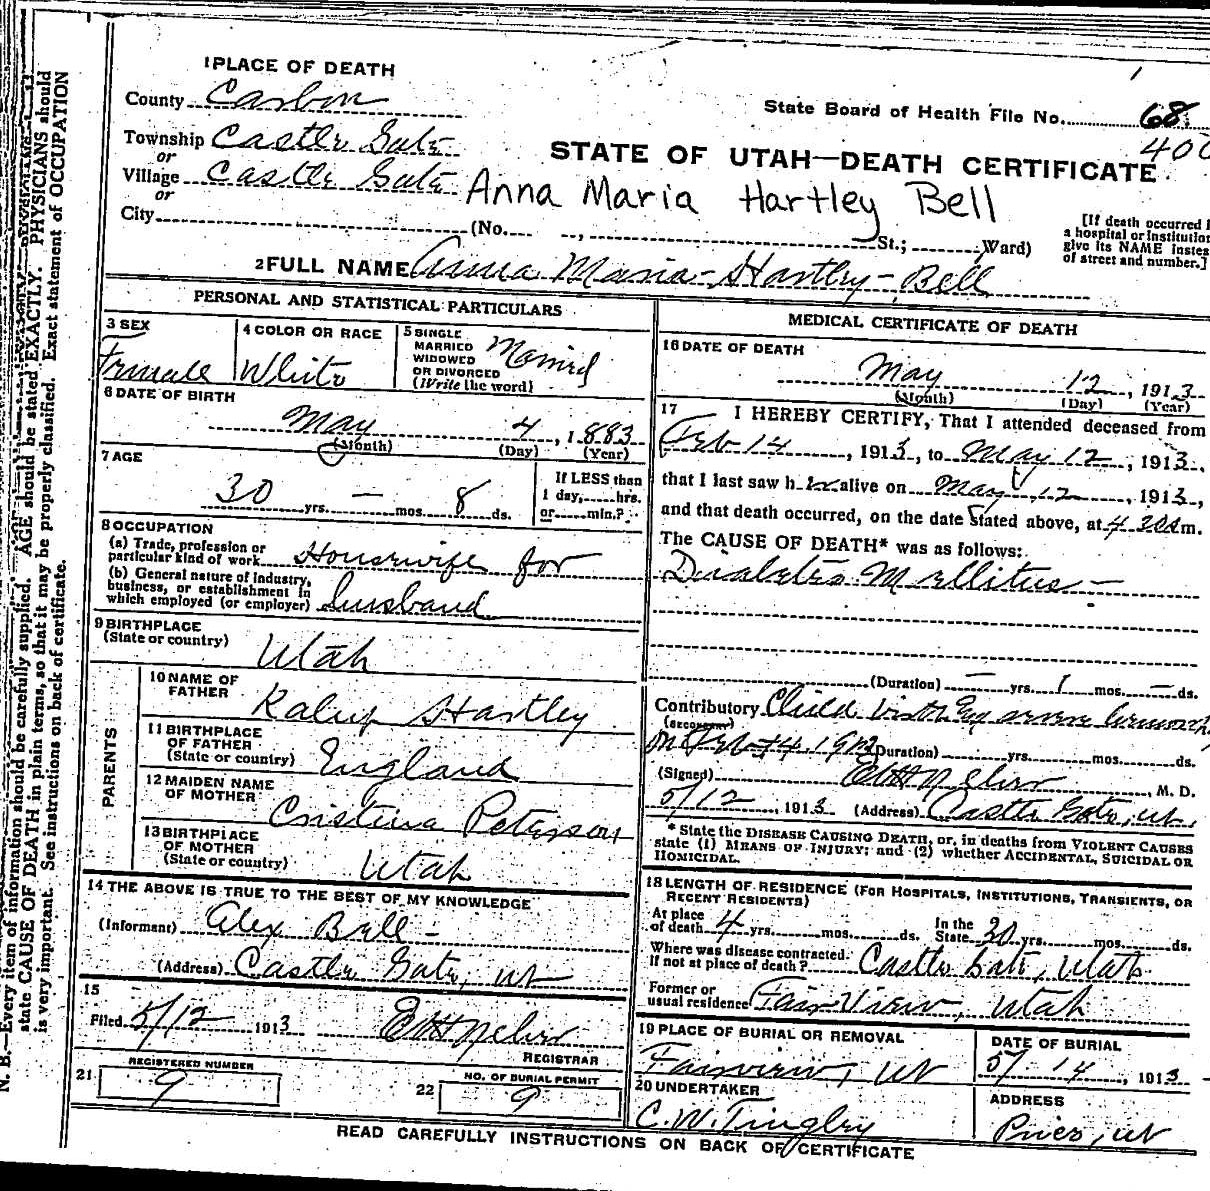 1 PLACE OF DEATH
County Carbon
Township Castle Gate
or
Village Castle Gate
or
City (No. , St.; Ward)
State Board of Health File No. 68
400
STATE OF UTAH—DEATH CERTIFICATE
Anna Maria Hartley Bell
[If death occurred
a hospital or institution
give its NAME instea
of street and number.]
2 FULL NAME Anna Maria Hartley Bell
PERSONAL AND STATISTICAL PARTICULARS
3 SEX
Female
4 COLOR OR RACE
White
5 SINGLE
MARRIED
WIDOWED
OR DIVORCED
(Write the word)
Married
6 DATE OF BIRTH
May 4, 1883
(Month) (Day) (Year)
7 AGE
30 yrs. — mos. 8 ds.
If LESS than
1 day, hrs.
or min.?
8 OCCUPATION
(a) Trade, profession or
particular kind of work Housewife for
(b) General nature of industry,
business, or establishment in
which employed (or employer) husband
9 BIRTHPLACE
(State or country)
Utah
PARENTS
10 NAME OF
FATHER
Hartley
11 BIRTHPLACE
OF FATHER
(State or country)
England
12 MAIDEN NAME
OF MOTHER
Cristina Peterson
13 BIRTHPLACE
OF MOTHER
(State or country)
Utah
14 THE ABOVE IS TRUE TO THE BEST OF MY KNOWLEDGE
(Informant) Alex Bell
(Address) Castle Gate, Ut
15
Filed 5/12 1913
REGISTRAR
21 REGISTERED NUMBER
9
22 NO. OF BURIAL PERMIT
9
MEDICAL CERTIFICATE OF DEATH
16 DATE OF DEATH
May 12, 1913
(Month) (Day) (Year)
17 I HEREBY CERTIFY, That I attended deceased from
Feb 14, 1913, to May 12, 1913,
that I last saw her alive on May 12, 1913,
and that death occurred, on the date stated above, at 4 30 am.
The CAUSE OF DEATH* was as follows:
Diabetes Mellitus —
(Duration) — yrs. 1 mos. — ds.
Contributory Child birth
(SECONDARY)
on Feb 14. (Duration) yrs. mos. ds.
(Signed) , M. D.
5/12, 1913 (Address) Castle Gate, Ut.
* State the DISEASE CAUSING DEATH, or, in deaths from VIOLENT CAUSES
state (1) MEANS OF INJURY; and (2) whether ACCIDENTAL, SUICIDAL OR
HOMICIDAL.
18 LENGTH OF RESIDENCE (FOR HOSPITALS, INSTITUTIONS, TRANSIENTS, OR
RECENT RESIDENTS)
At place
of death 4 yrs. mos. ds.
In the
State 30 yrs. mos. ds.
Where was disease contracted.
If not at place of death? Castle Gate, Utah
Former or
usual residence Fair View, Utah
19 PLACE OF BURIAL OR REMOVAL
Fairview, Ut
DATE OF BURIAL
5/ 14, 1913
20 UNDERTAKER
C. W. Tingley
ADDRESS
Price, Ut
READ CAREFULLY INSTRUCTIONS ON BACK OF CERTIFICATE
N. B.—Every item of information should be carefully supplied. AGE should be stated EXACTLY. PHYSICIANS should
state CAUSE OF DEATH in plain terms, so that it may be properly classified. Exact statement of OCCUPATION
is very important. See instructions on back of certificate.